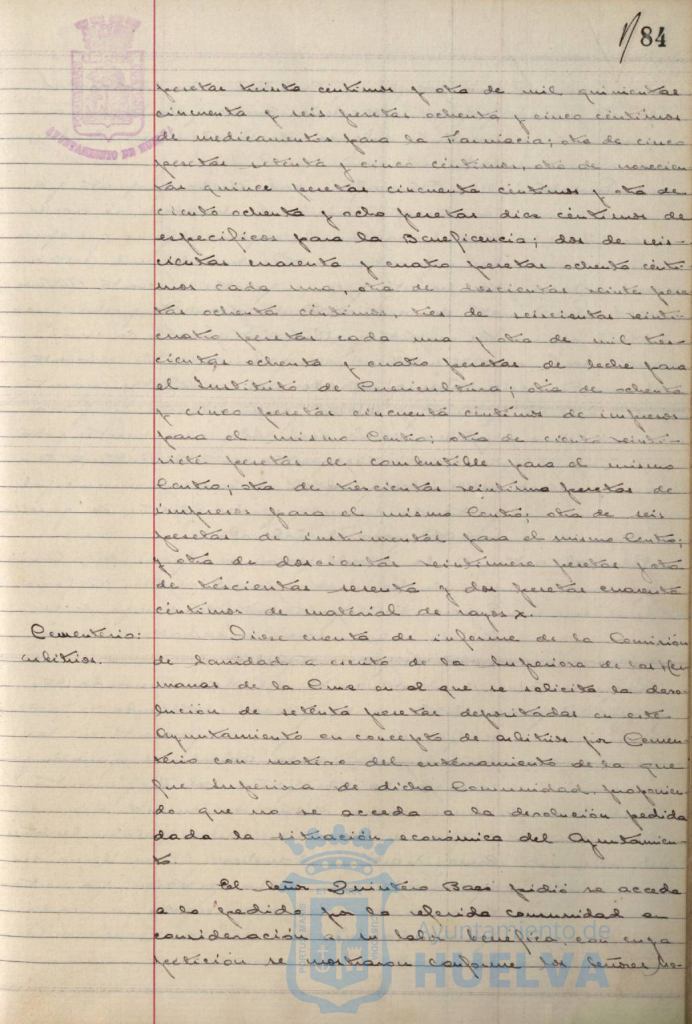 84
AYUNTAMIENTO DE HUELVA
pesetas treinta centimos y otra de mil quinientas
cincuenta y seis pesetas ochenta y cinco centimos
de medicamentos para la Farmacia; otra de cinco
pesetas setenta y cinco centimos, otra de novecien-
tas quince pesetas cincuenta centimos y otra de
ciento ochenta y ocho pesetas diez centimos de
especificos para la Beneficencia; dos de seis-
cientas cuarenta y cuatro pesetas ochenta cénti-
mos cada una, otra de doscientas veinte pese-
tas ochenta centimos, tres de seiscientas veinti-
cuatro pesetas cada una y otra de mil tres-
cientas ochenta y cuatro pesetas de leche para
el Instituto de Puericultura; otra de ochenta
y cinco pesetas cincuenta centimos de impresos
para el mismo Centro; otra de ciento veinti-
siete pesetas de combustible para el mismo
Centro; otra de trescientas veintiuna pesetas de
impresos para el mismo Centro; otra de seis
pesetas de instrumentos para el mismo Centro;
y otra de doscientas veintinueve pesetas y otra
de trescientas sesenta y dos pesetas cuarenta
centimos de material de rayos X.
Cementerio:
arbitrios.
Diose cuenta de informe de la Comisión
de Sanidad a escrito de la Superiora de las Her-
manas de la Cruz en el que se solicita la devo-
lución de setenta pesetas depositadas en este
Ayuntamiento en concepto de arbitrios por Cemen-
terio con motivo del enterramiento de la que
fue Superiora de dicha Comunidad, proponien-
do que no se acceda a la devolución pedida
dada la situación económica del Ayuntamien-
to
El Señor Quintero Baez pidió se acceda
a lo pedido por la referida comunidad en
consideración a su labor benéfica, con cuya
petición se mostraron conforme los Señores
Ayuntamiento de
HUELVA